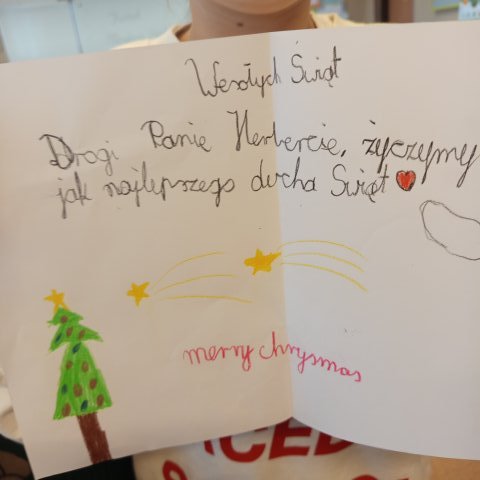 Wesołych Świąt
Drogi Panie Herbercie, życzymy
jak najlepszego ducha Świąt
merry chrysmas
CED